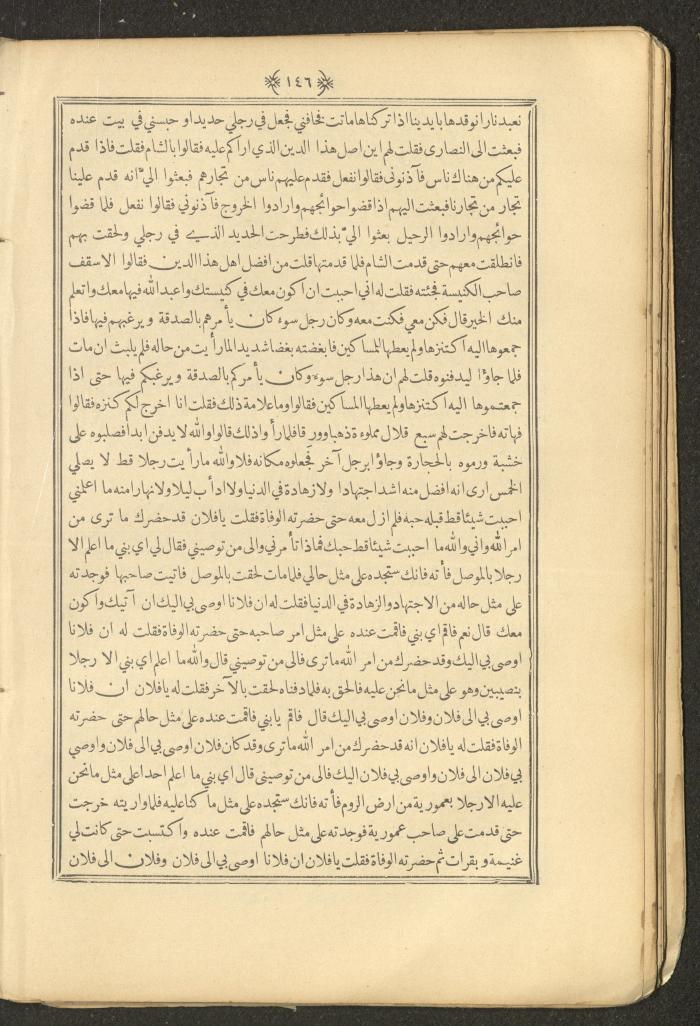 ١٤٦
نعبد نارا نوقدها بايدينا اذا تركناها ماتت فخافني فجعل في رجلي حديدا و حبسني في بيت عنده
فبعثت الى النصارى فقلت لهم اين اصل هذا الدين الذي اراكم عليه فقالوا بالشام فقلت فاذا قدم
عليكم من هناك ناس فآذنوني فقالوا نفعل فقدم عليهم ناس من تجارهم فبعثوا اليّ انه قدم علينا
تجار من تجارنا فبعثت اليهم اذا قضوا حوائجهم وارادوا الخروج فآذنوني فقالوا نفعل فلما قضوا
حوائجهم وارادوا الرحيل بعثوا اليّ بذلك فطرحت الحديد الذي في رجلي ولحقت بهم
فانطلقت معهم حتى قدمت الشام فلما قدمتها قلت من افضل اهل هذا الدين فقالوا الاسقف
صاحب الكنيسة فجئته فقلت له اني احببت ان أكون معك في كنيستك واعبد الله فيها معك واتعلم
منك الخير قال فكن معي فكنت معه وكان رجل سوء كان يأمرهم بالصدقة ويرغبهم فيها فاذا
جمعوها اليه اكتنزها ولم يعطها المساكين فابغضته بغضا شديدا لما رأيت من حاله فلم يلبث ان مات
فلما جاؤا ليدفنوه قلت لهم ان هذا رجل سوء وكان يأمركم بالصدقة ويرغبكم فيها حتى اذا
جمعتموها اليه اكتنزها ولم يعطها المساكين فقالوا وما علامة ذلك فقلت انا اخرج لكم كنزه فقالوا
فهاته فاخرجت لهم سبع قلال مملوءة ذهبا وورقا فلما رأوا ذلك قالوا والله لا يدفن ابدا فصلبوه على
خشبة ورموه بالحجارة وجاؤا برجل آخر فجعلوه مكانه فلا والله ما رأيت رجلا قط لا يصلي
الخمس ارى انه افضل منه اشد اجتهادا ولا زهادة في الدنيا ولا ادأب ليلا ولا نهارا منه ما اعلمني
احببت شيئا قط قبله حبه فلم ازل معه حتى حضرته الوفاة فقلت يا فلان قد حضرك ما ترى من
امر الله واني والله ما احببت شيئا قط حبك فماذا تأمرني والى من توصيني فقال لي اي بني ما اعلم الا
رجلا بالموصل فأته فانك ستجده على مثل حالي فلما مات لحقت بالموصل فاتيت صاحبها فوجدته
على مثل حاله من الاجتهاد والزهادة في الدنيا فقلت له ان فلانا اوصى بي اليك ان آتيك واكون
معك قال نعم فاقم اي بني فاقمت عنده على مثل امر صاحبه حتى حضرته الوفاة فقلت له ان فلانا
اوصى بي اليك وقد حضرك من امر الله ما ترى فالى من توصيني قال والله ما اعلم اي بني الا رجلا
بنصيبين وهو على مثل ما نحن عليه فالحق به فلما دفناه لحقت بالآخر فقلت له يا فلان ان فلانا
اوصى بي الى فلان وفلان اوصى بي اليك قال فاقم يا بني فاقمت عنده على مثل حالهم حتى حضرته
الوفاة فقلت له يا فلان انه قد حضرك من امر الله ما ترى وقد كان فلان اوصى بي الى فلان واوصي
بي فلان الى فلان واوصى بي فلان اليك فالى من توصيني قال اي بني ما اعلم احدا على مثل ما نحن
عليه الا رجلا بعمورية من ارض الروم فأته فانك ستجده على مثل ما كنا عليه فلما واريته خرجت
حتى قدمت على صاحب عمورية فوجدته على مثل حالهم فاقمت عنده واكتسبت حتى كانت لي
غنيمة وبقرات ثم حضرته الوفاة فقلت يا فلان ان فلانا اوصى بي الى فلان وفلان الى فلان